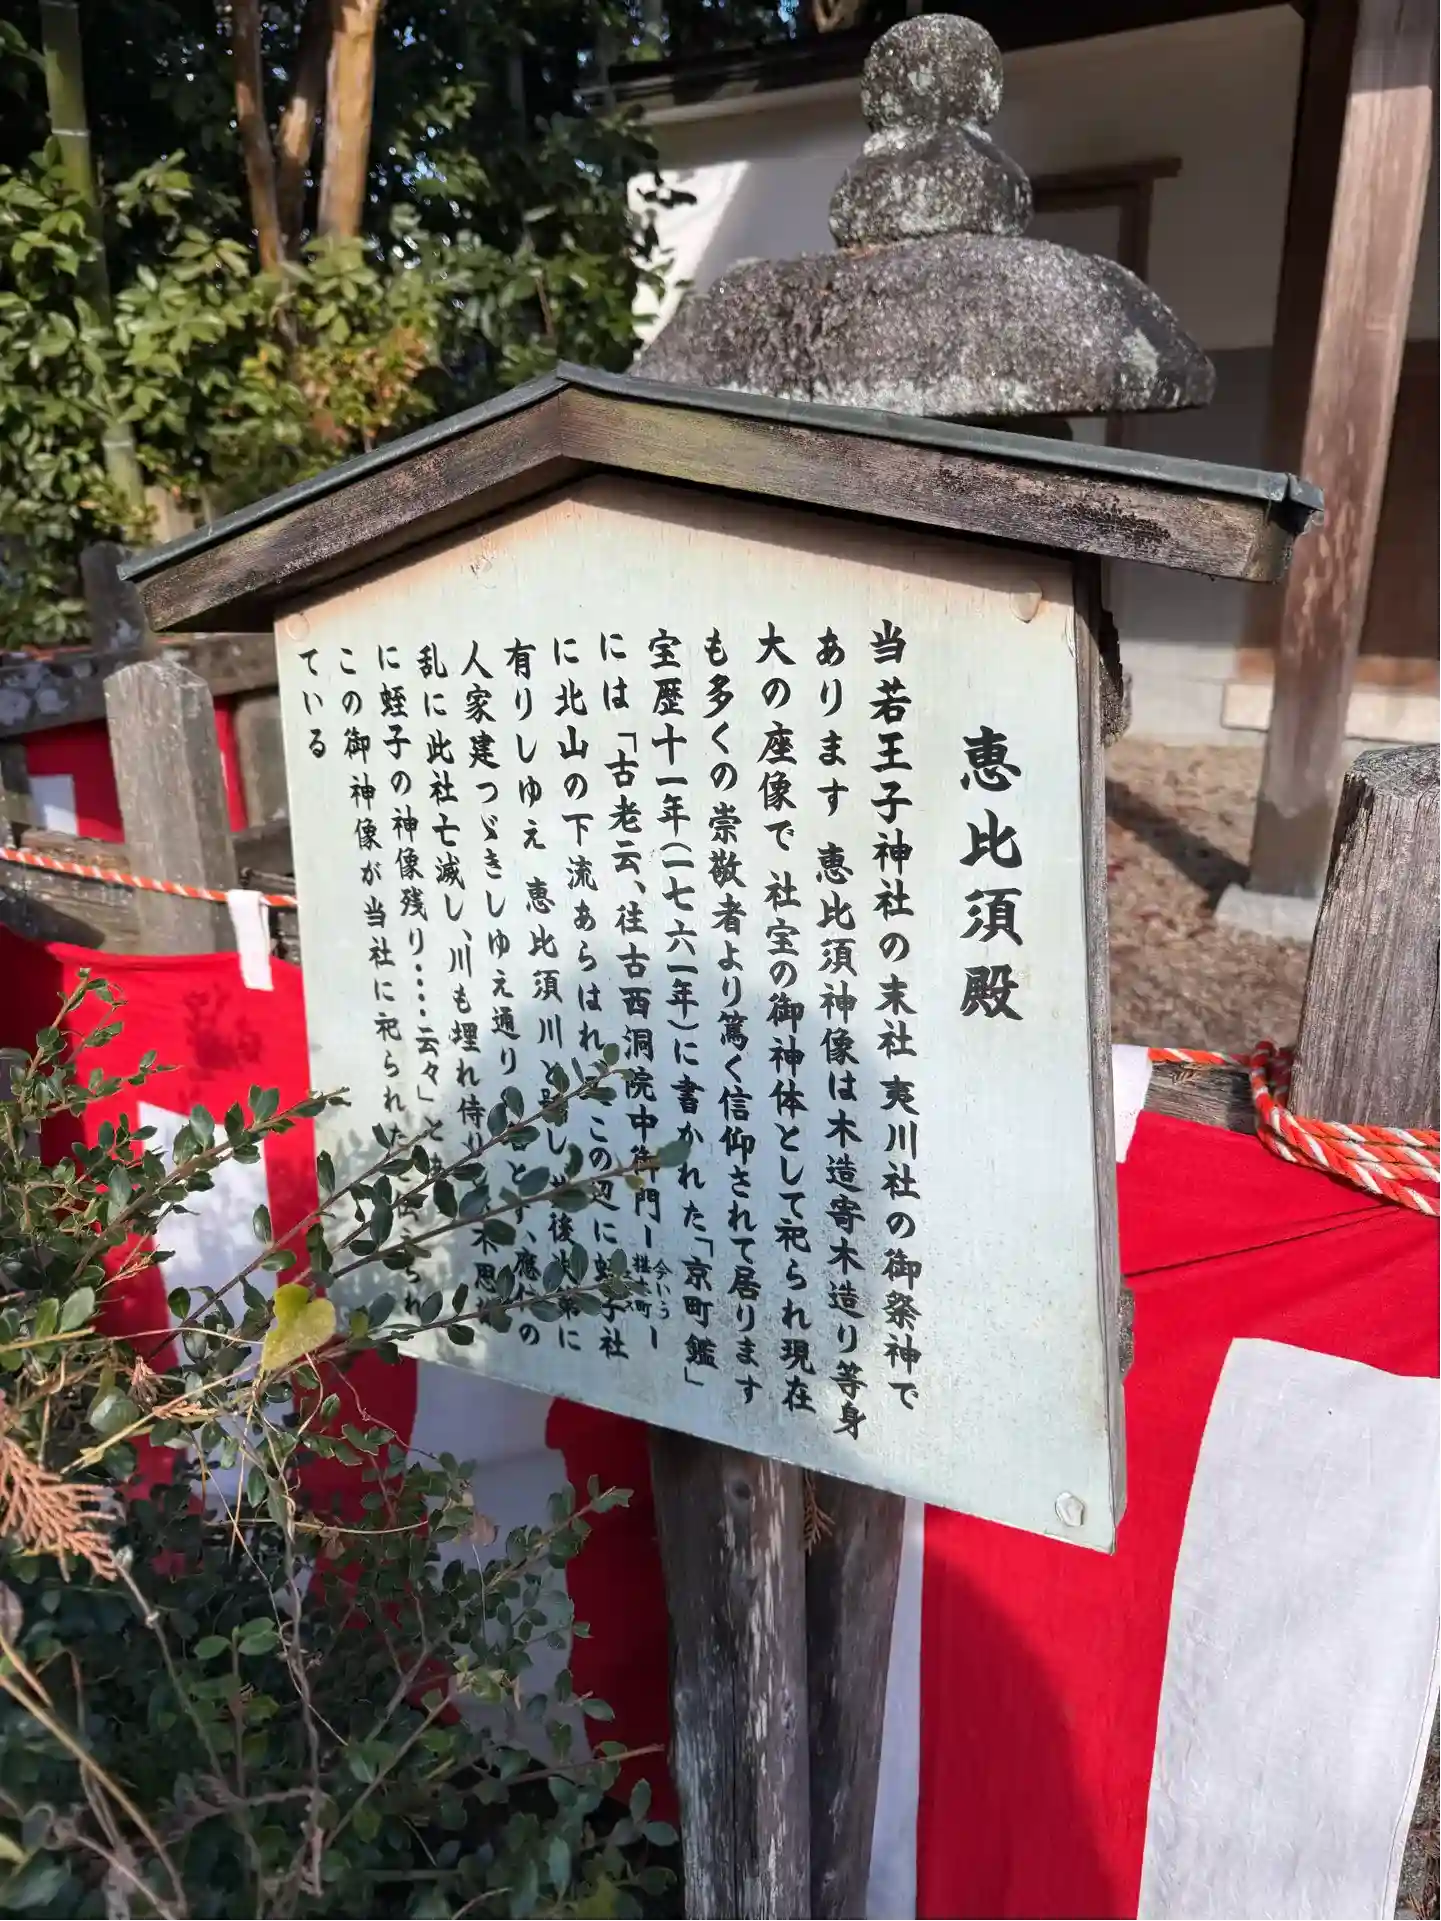 恵比須殿
当若王子神社の末社 夷川社の御祭神で
あります 恵比須神像は木造寄木造り等身
大の座像で 社宝の御神体として祀られ現在
も多くの崇敬者より篤く信仰されて居ります
宝歴十一年(一七六一年)に書かれた「京町鑑」
には「古老云、往古西洞院中御門ー今いう椹木町ー
に北山の下流あらはれ、この辺に蛭子社
有りしゆえ 恵比須川と号し 其後次第に
人家建つゞきしゆえ通り 名とす、應仁の
乱に此社亡滅し、川も埋れ侍り 不思
に蛭子の神像残り‥‥云々」と
この御神像が当社に祀られた られ
ている